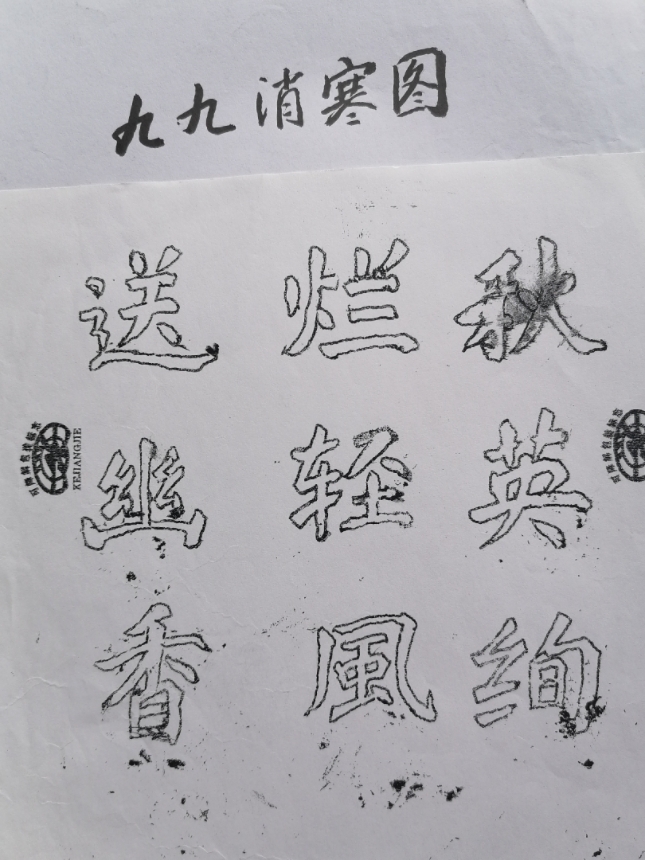 九九消寒图
秋英绚
烂轻風
送幽香
KEJIANGJIE